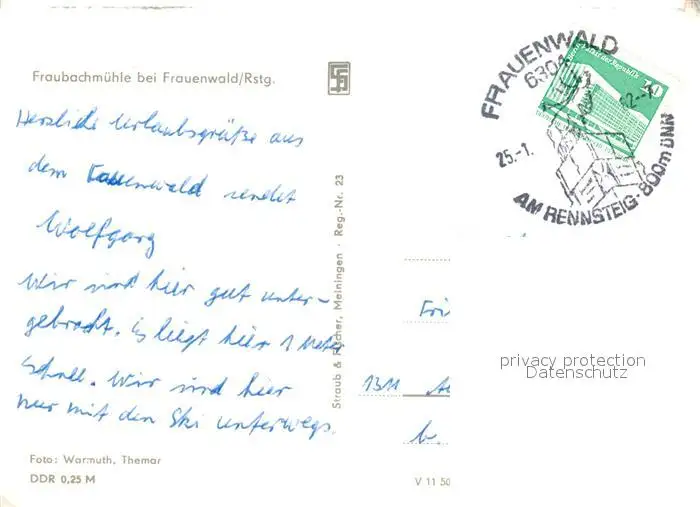 Fraubachmühle bei Frauenwald/Rstg.
Herzliche Urlaubsgrüße aus
dem Frauenwald sendet
Wolfgang
Wir sind hier gut unter-
gebracht. Es liegt hier 1 Meter
Schnee. Wir sind hier
nur mit den Ski unterwegs.
Foto: Warmuth, Themar
DDR 0,25 M
Straub & Fischer, Meiningen · Reg.-Nr. 23
V 11 50
FRAUENWALD
25.-1.
AM RENNSTEIG·800m ÜNN
1311
b.
privacy protection
Datenschutz